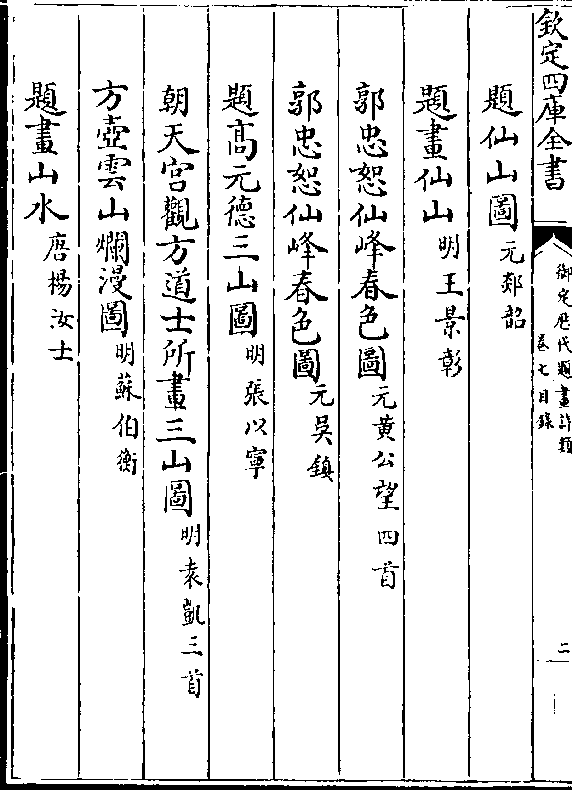 欽定四庫全書
御定歷代題畫詩類
卷七目録
二
題仙山圖元郯韶
題畫仙山明王景彰
郭忠恕仙峰春色圖元黄公望四首
郭忠恕仙峰春色圖元吳鎮
題高元德三山圖明張以寧
朝天宮觀方道士所畫三山圖明袁凱三首
方壺雲山爛漫圖明蘇伯衡
題畫山水唐楊汝士